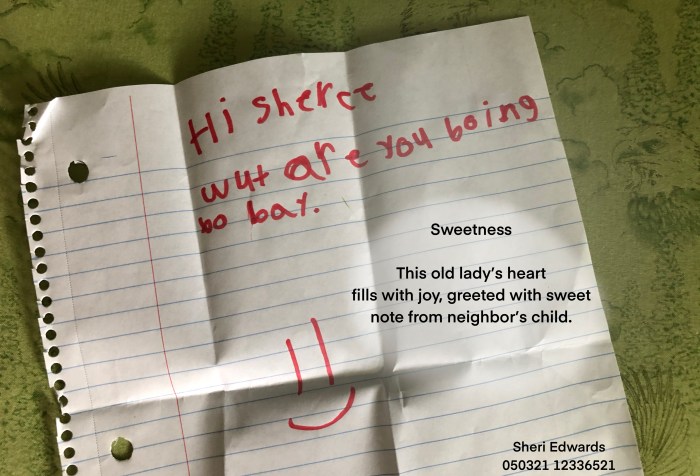 Hi sheree
wut are you boing
bo bay.
Sweetness
This old lady’s heart
fills with joy, greeted with sweet
note from neighbor’s child.
Sheri Edwards
050321 12336521